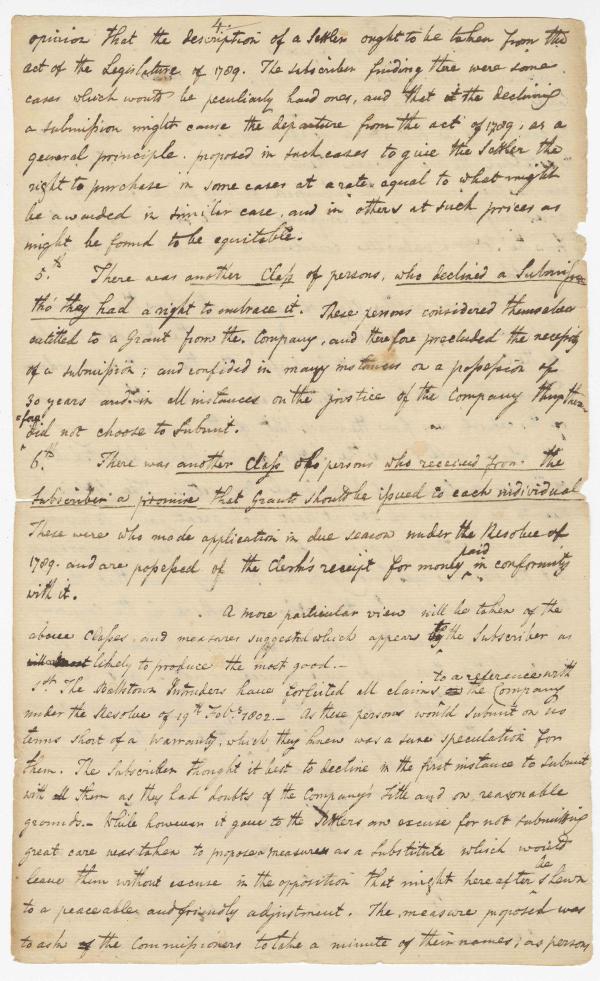 4.
opinion that the description of a Settler ought to be taken from the
act of the Legislature of 1789. The subscriber finding there were some
cases which would be peculiarly hard ones, and that the declining
a submission might cause the departure from the act of 1789, as a
general principle. proposed in such cases to give the Settler the
right to purchase in some cases at a rate equal to what might
be awarded in similar case, and in others at such prices as
might be found to be equitable.
5.th There was another Class of persons, who declined a Submission
tho' they had a right to embrace it. These persons considered themselves
entitled to a Grant from the Company, and therefore precluded the necessity
of a submission; and confided in many instances on a possession of
30 years and in all instances on the justice of the Company they there=
=fore did not choose to Submit.
6.th There was another Class of persons who received from the
Subscriber a promise that Grants should be issued to each individual
These were who made application in due season under the Resolve of
1789. and are possessed of the Clerk's receipt for money paid in conformity
with it.
A more particular view will be taken of the
above Classes, and measures suggested which appear to the Subscriber as
likely to produce the most good.—
1.st The Ballstown Intruders have forfeited all claims to a reference with the Company
under the Resolve of 19th Feby. 1802.— As these persons would submit on no
terms short of a Warranty, which they knew was a sure speculation for
them. The Subscriber thought it best to decline in the first instance to submit
with all them as they had doubts of the Company's title and on reasonable
grounds.— While however it gave to the Settlers an excuse for not submitting
great care was taken to propose a measure as a substitute which would
leave them without excuse in the opposition that might hereafter be shewn
to a peaceable and friendly adjustment. The measure proposed was
to ask the Commissioners to take a minute of their names, as persons